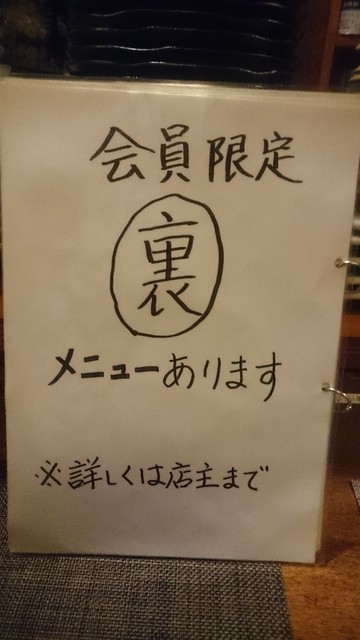 会員限定
裏
メニューあります
※詳しくは店主まで